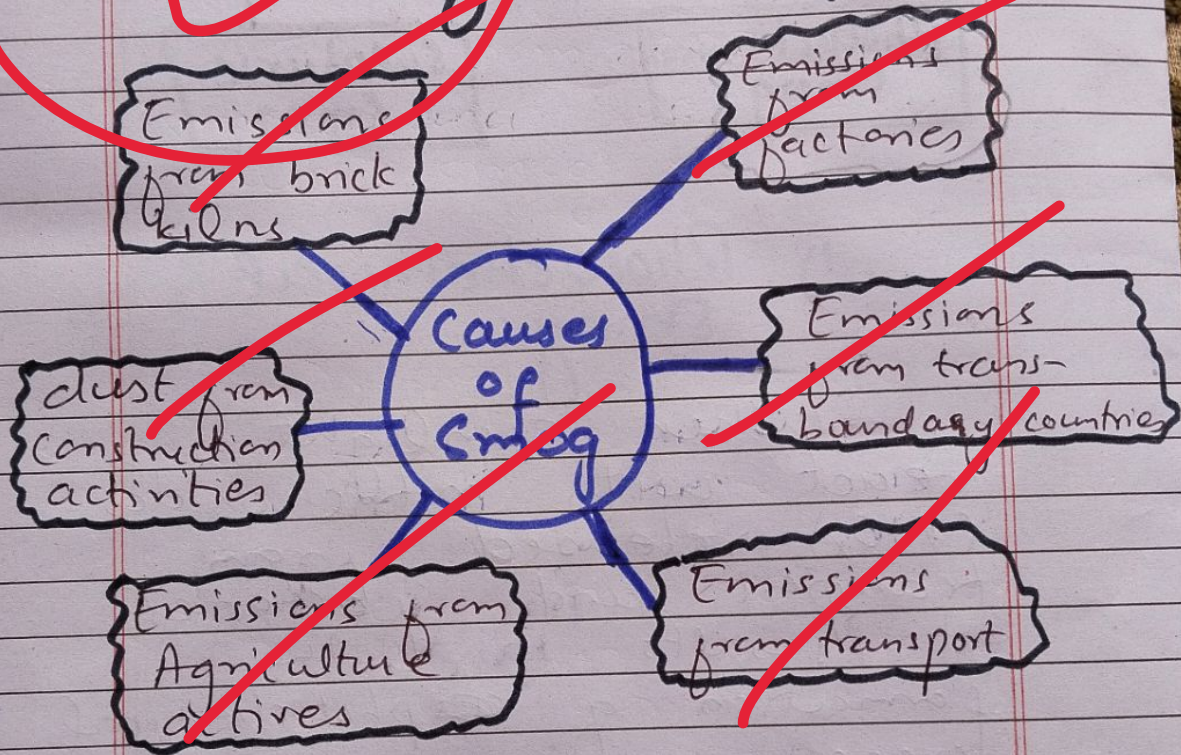 Emissions
from brick
kilns
Emissions
from
factories
Causes
of
Smog
Emissions
from trans-
boundary countries
dust from
construction
activities
Emissions from
Agriculture
actives
Emissions
from transport